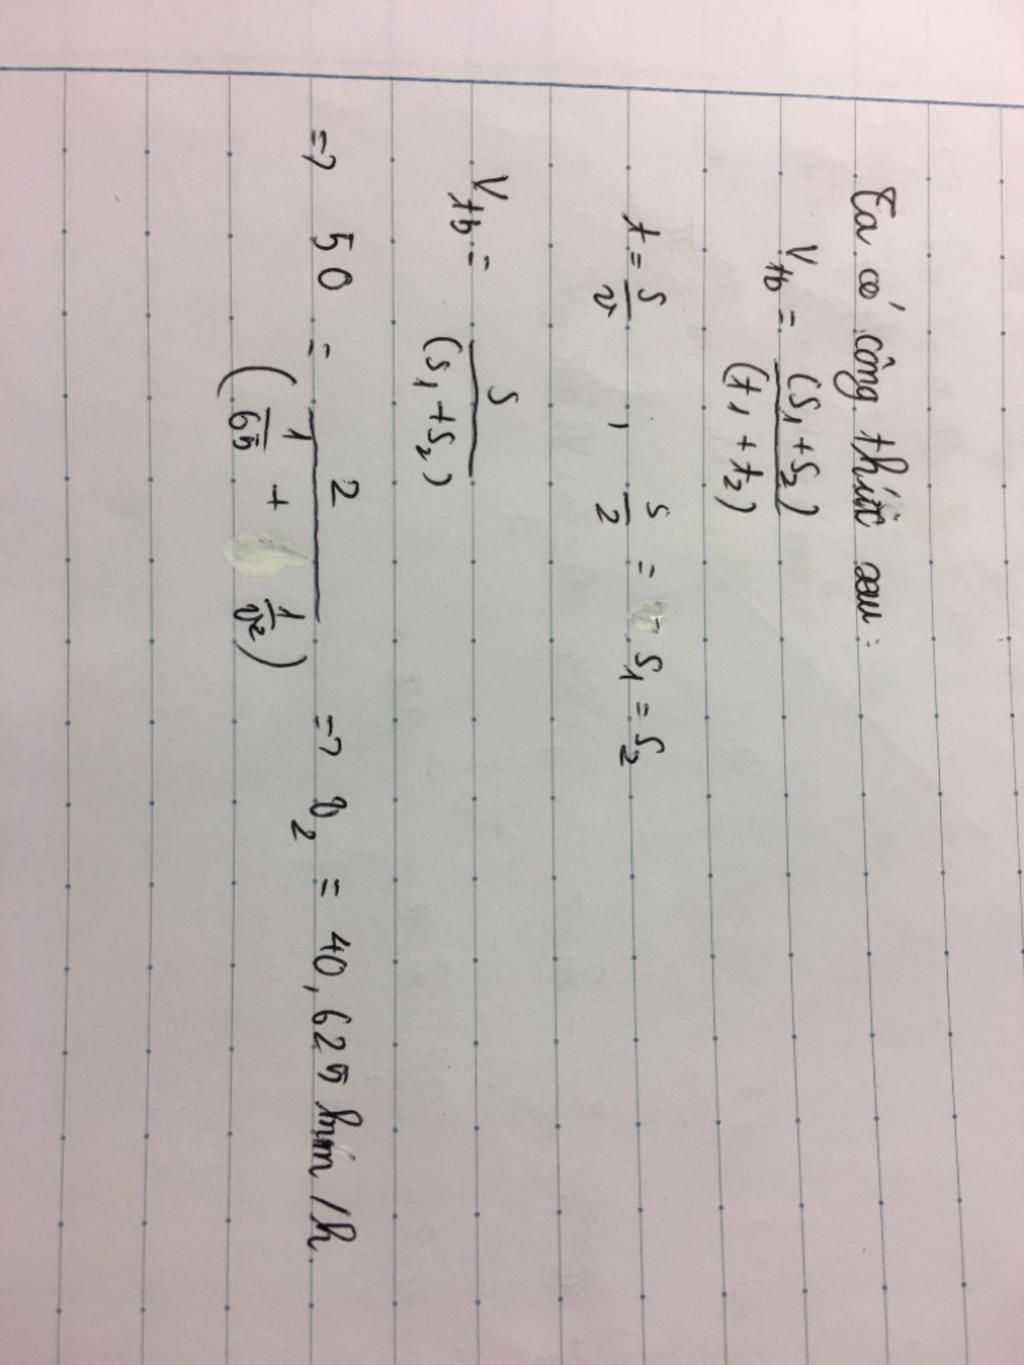 Ta có công thức sau:
V_tb = (S₁+S₂)/(t₁+t₂)
t = S/v , S/2 = S₁ = S₂
V_tb = S/(S₁+S₂)
=> 50 = 2/(1/65 + 1/v₂) => v₂ = 40,625 km/h.